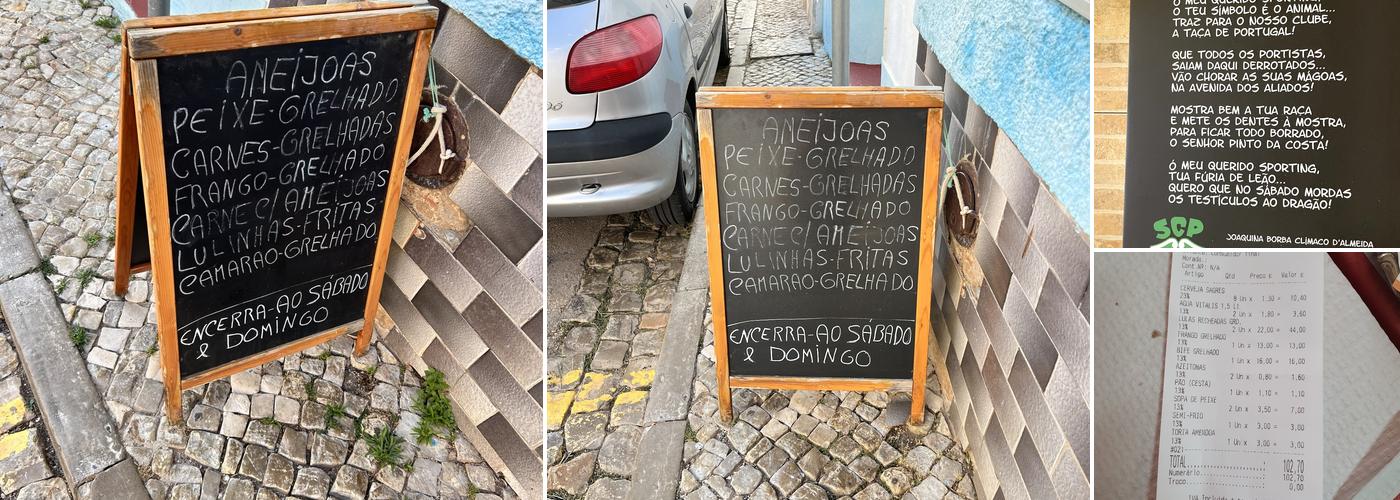 AMEIJOAS
PEIXE-GRELHADO
CARNES-GRELHADAS
FRANGO-GRELHADO
CARNE C/ AMEIJOAS
LULINHAS-FRITAS-
CAMARAO-GRELHADO
ENCERRA-AO SÁBADO
& DOMINGO
AMEIJOAS
PEIXE-GRELHADO
CARNES-GRELHADAS
FRANGO-GRELHADO
CARNE C/ AMEIJOAS
LULINHAS-FRITAS
CAMARAO-GRELHADO
ENCERRA-AO SÁBADO
& DOMINGO
Ó MEU QUERIDO SPORTING,
O TEU SÍMBOLO É O ANIMAL...
TRAZ PARA O NOSSO CLUBE,
A TAÇA DE PORTUGAL!
QUE TODOS OS PORTISTAS,
SAIAM DAQUI DERROTADOS...
VÃO CHORAR AS SUAS MÁGOAS,
NA AVENIDA DOS ALIADOS!
MOSTRA BEM A TUA RAÇA
E METE OS DENTES À MOSTRA,
PARA FICAR TODO BORRADO,
O SENHOR PINTO DA COSTA!
Ó MEU QUERIDO SPORTING,
TUA FÚRIA DE LEÃO...
QUERO QUE NO SÁBADO MORDAS
OS TESTÍCULOS AO DRAGÃO!
SCP
JOAQUINA BORBA CLÍMACO D'ALMEIDA
Consumidor final
Morada.:
Cont.Nº: N/A
Artigo Qtd Preco € Valor €
CERVEJA SAGRES
23% 8 Un x 1,30 = 10,40
AGUA VITALIS 1,5 Lt
13% 2 Un x 1,80 = 3,60
LULAS RECHEADAS GRD.
13% 2 Un x 22,00 = 44,00
FRANGO GRELHADO
13% 1 Un x 13,00 = 13,00
BIFE GRELHADO
13% 1 Un x 16,00 = 16,00
AZEITONAS
13% 2 Un x 0,80 = 1,60
PÃO (CESTA)
13% 1 Un x 1,10 = 1,10
SOPA DE PEIXE
13% 2 Un x 3,50 = 7,00
SEMI-FRIO
13% 1 Un x 3,00 = 3,00
TORTA AMENDOA
13% 1 Un x 3,00 = 3,00
#021
TOTAL............: 102,70
Numerário........: 102,70
Troco............: 0,00